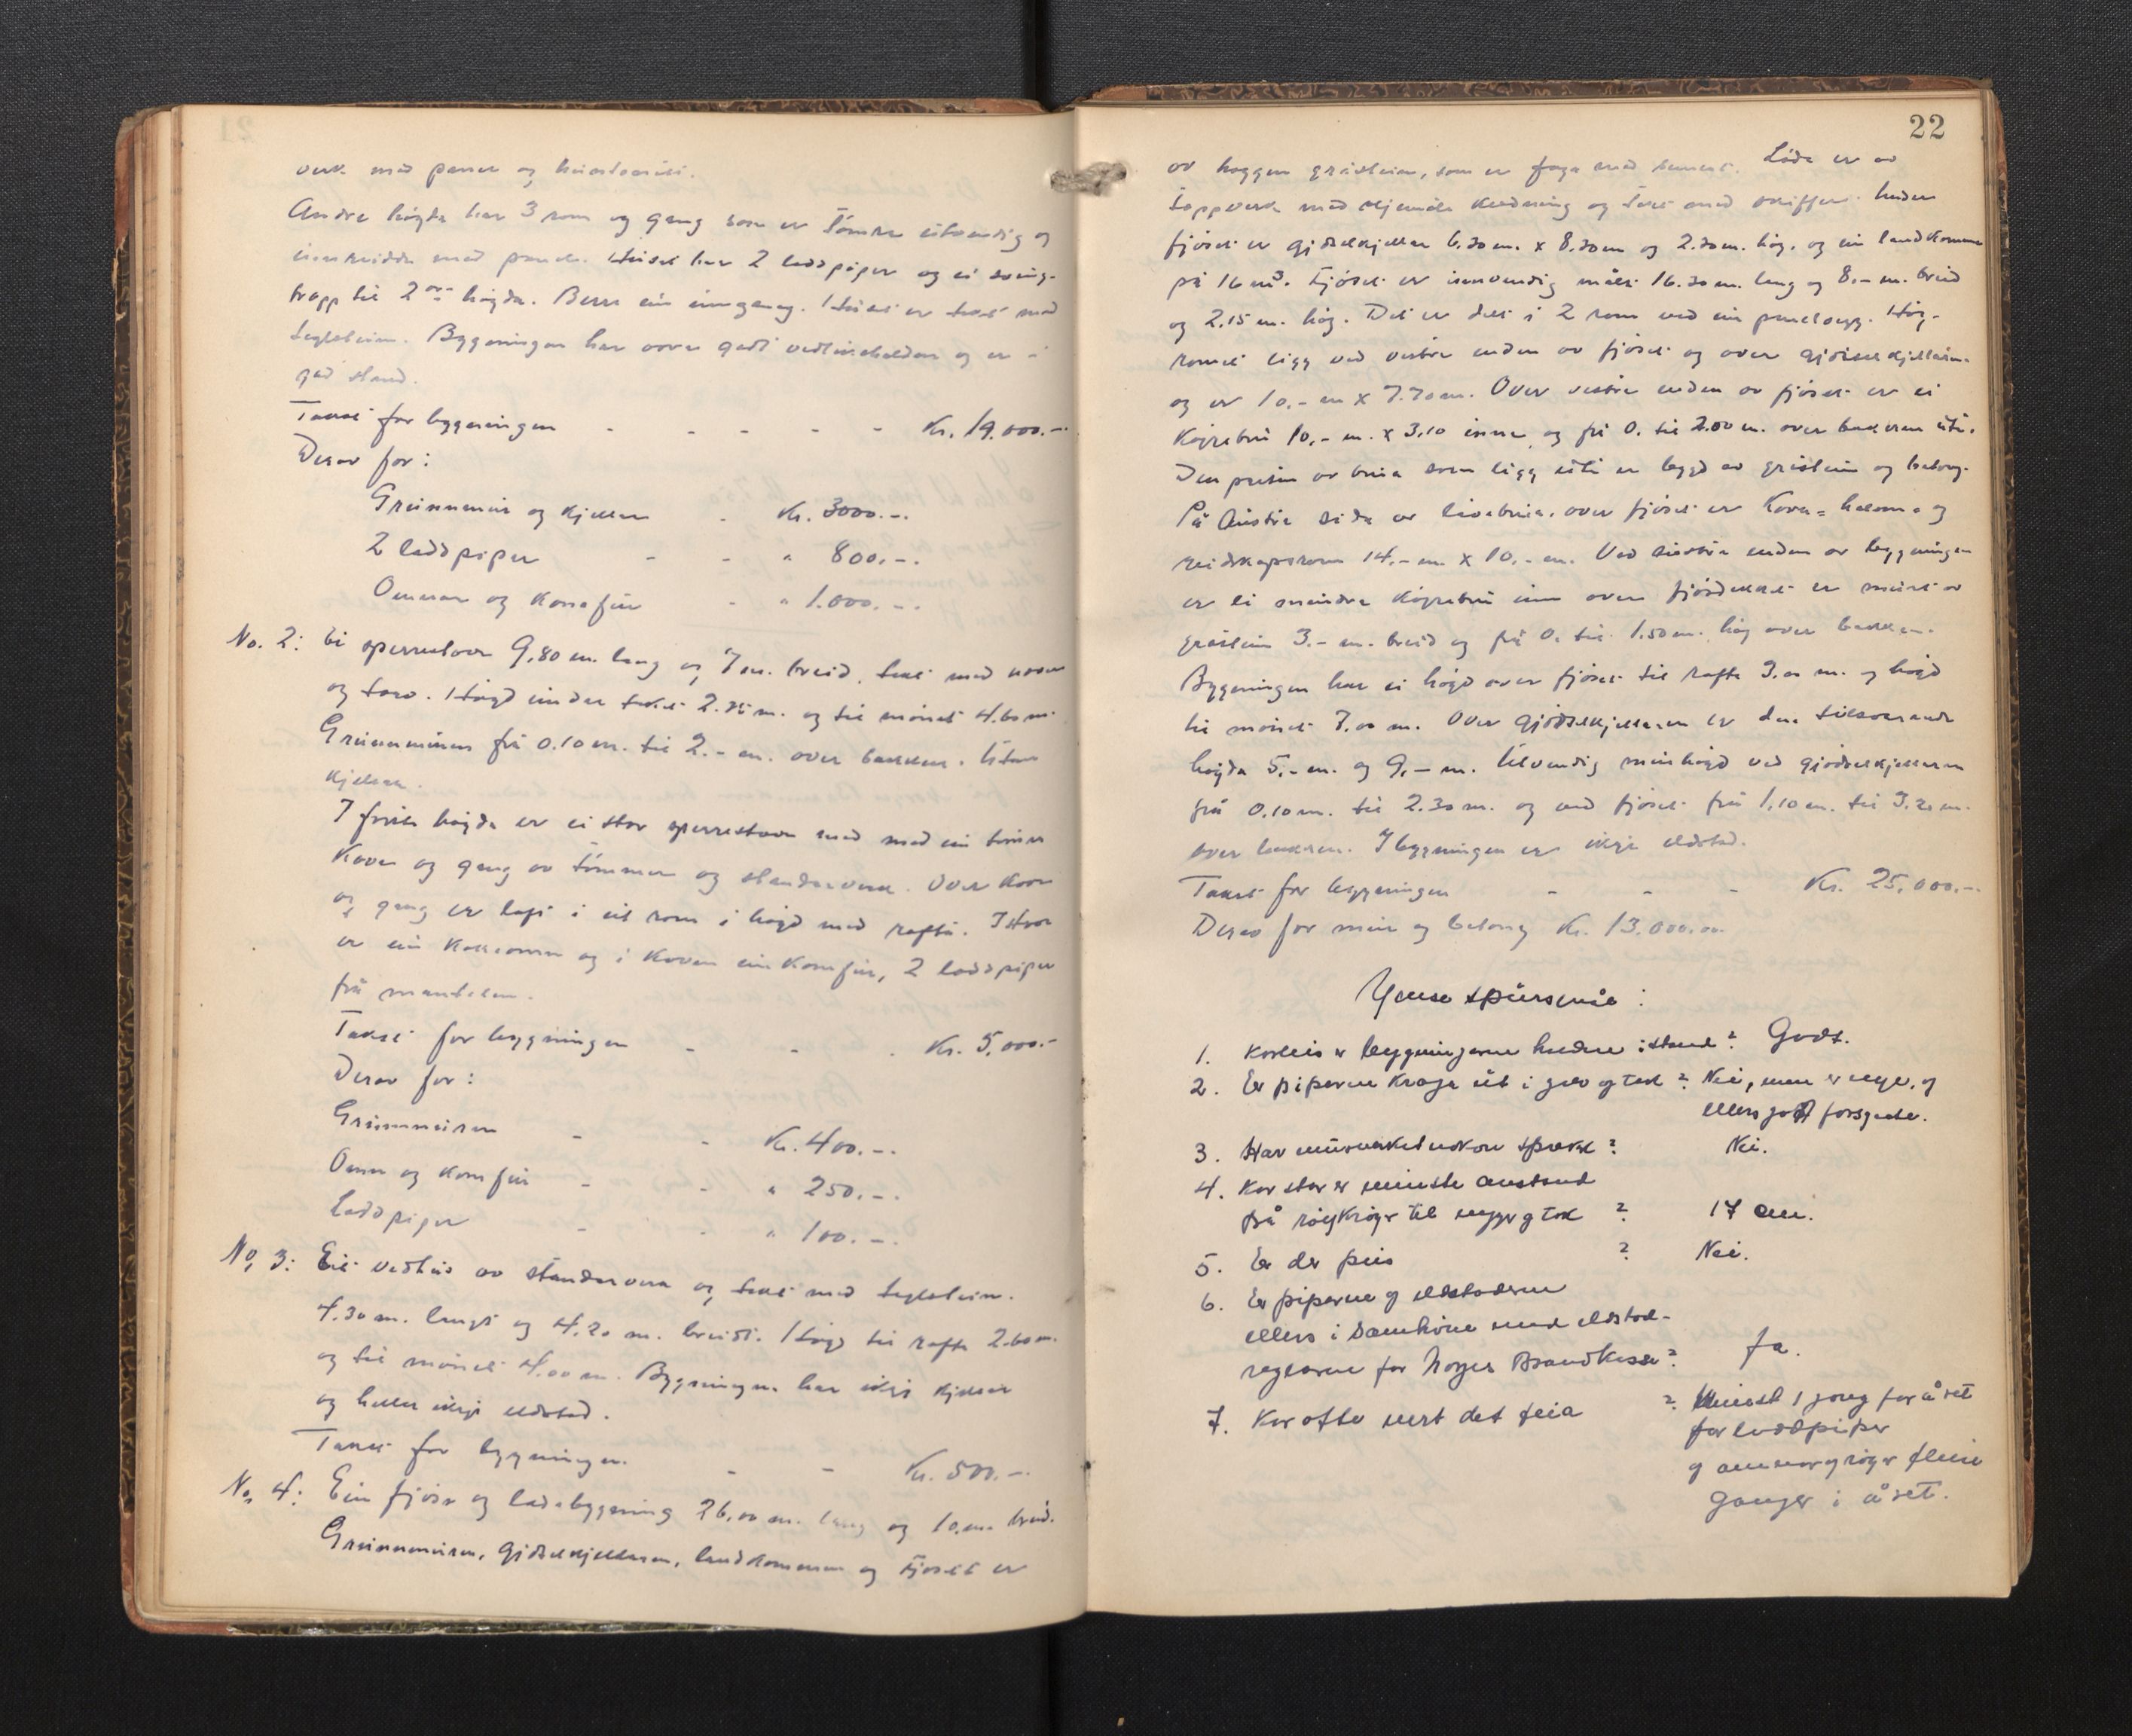 verk med panel og
Andre högda har 3 rom og gang som er tömra utvendig og
innreidde med panel. Huset har 2 laddpiper og ei sving-
trapp til 2 högda. Berre ein inngang. Huset er tekt med
teglstein. Bygningen har vore godt vedlikehalden og er i
god stand.
Takst for bygningen - - - - - Kr. 19.000.-
Derav for:
Grunnmur og kjellar - Kr. 3000.-.
2 laddpiper - - " 800.-.
Omnar og komfur - " 1.000.-.
No. 2: Ei sperrestova 9,80 m. lang og 7 m. breid, tekt med never
og torv. Högd under taket 2.75 m. og til mönet 4.60 m.
Grunnmuren frå 0.10 m. til 2.- m. over bakken. Utan
kjellar.
I förste högda er ei stor sperrestova med med ein tömra
Kove og gang av tömmer og standarverk. Over kove
og gang er loft i eit rom i högd med rafta. I stova
er ein kakkomn og i koven ein komfur, 2 laddpiper
frå
Takst for bygningen - - - Kr. 5.000.-
Derav for:
Grunnmuren - - Kr. 400.-.
Omn og komfur - - " 250.-.
Laddpiper - - " 100.-.
No. 3: Eit vedhus av standarverk og tekt med teglstein.
4.30 m. langt og 4.20 m. breidt. Högd til rafta 2.60 m.
og til mönet 4.00 m. Bygningen har ikkje kjellar
og heller ikkje eldstad.
Takst for bygningen. - - Kr. 500.-.
No. 4: Ein fjös og ladebygning 26.00 m. lang og 10. m. breid.
Grunnmuren, gjödselkjellaren, landkommen og fjöset er
22
av hoggen gråstein, som er fuga med sement. Löda er av
med kledning og tekt med skiffer. Under
fjöset er gjödselkjellar 6.30 m. x 8.30 m og 2.30 m. hög. og ein landkomme
på 16 m³. Fjöset er innvendig målt 16.30 m. lang og 8.- m. breid
og 2.15 m. hög. Det er delt i 2 rom ved ein panelvegg. Höy-
romet ligg ved vestre enden av fjöset og over gjödselkjellaren
og er 10.- m x 7.70 m. Over vestre enden av fjöset er ei
Köyrebru 10.- m. x 3.10 inne og frå 0. til 2.00 m. over bakken ute.
Den parten av brua som ligg uti er bygd av gråstein og betong.
På austre sida av låvebrua, over fjöset er
reidskapsrom 14.- m x 10.- m. Ved austre enden av bygningen
er ei mindre köyrebru inn over fjösdekket er murt av
gråstein 3.- m. breid og frå 0. til 1.50 m. hög over bakken.
Bygningen har ei högd over fjöset til rafta 3.00 m. og högd
til mönet 7.00 m. Over gjödselkjellaren er den tilsvarande
högda 5.- m. og 9.- m. Utvendig murhögd ved gjödselkjellaren
frå 0.10 m. til 2.30 m. og ved fjöset frå 1.10 m. til 3.20 m.
over bakken. I bygningen er ikkje eldstad.
Takst for bygningen - - - Kr. 25.000.-.
Derav for mur og betong Kr. 13.000.00.
Ymse spursmål:
1. Korleis er bygningarne haldne i stand? Godt.
2. Er piperne kraga ut i golv og tak? Nei, men er nye, og
ellers godt
3. Har murverket nokon sprekk? Nei.
4. Kor stor er minste avstand
frå röykrör til vegger og tak? 17 cm.
5. Er der peis? Nei.
6. Er piperne og eldstaderne
ellers i samhöve med eldstad-
reglarne for Norges Brandkasse? Ja.
7. Kor ofte vert det feia? Minst 1 gong for året
for laddpiper
og omnar og rör fleire
gonger i året.